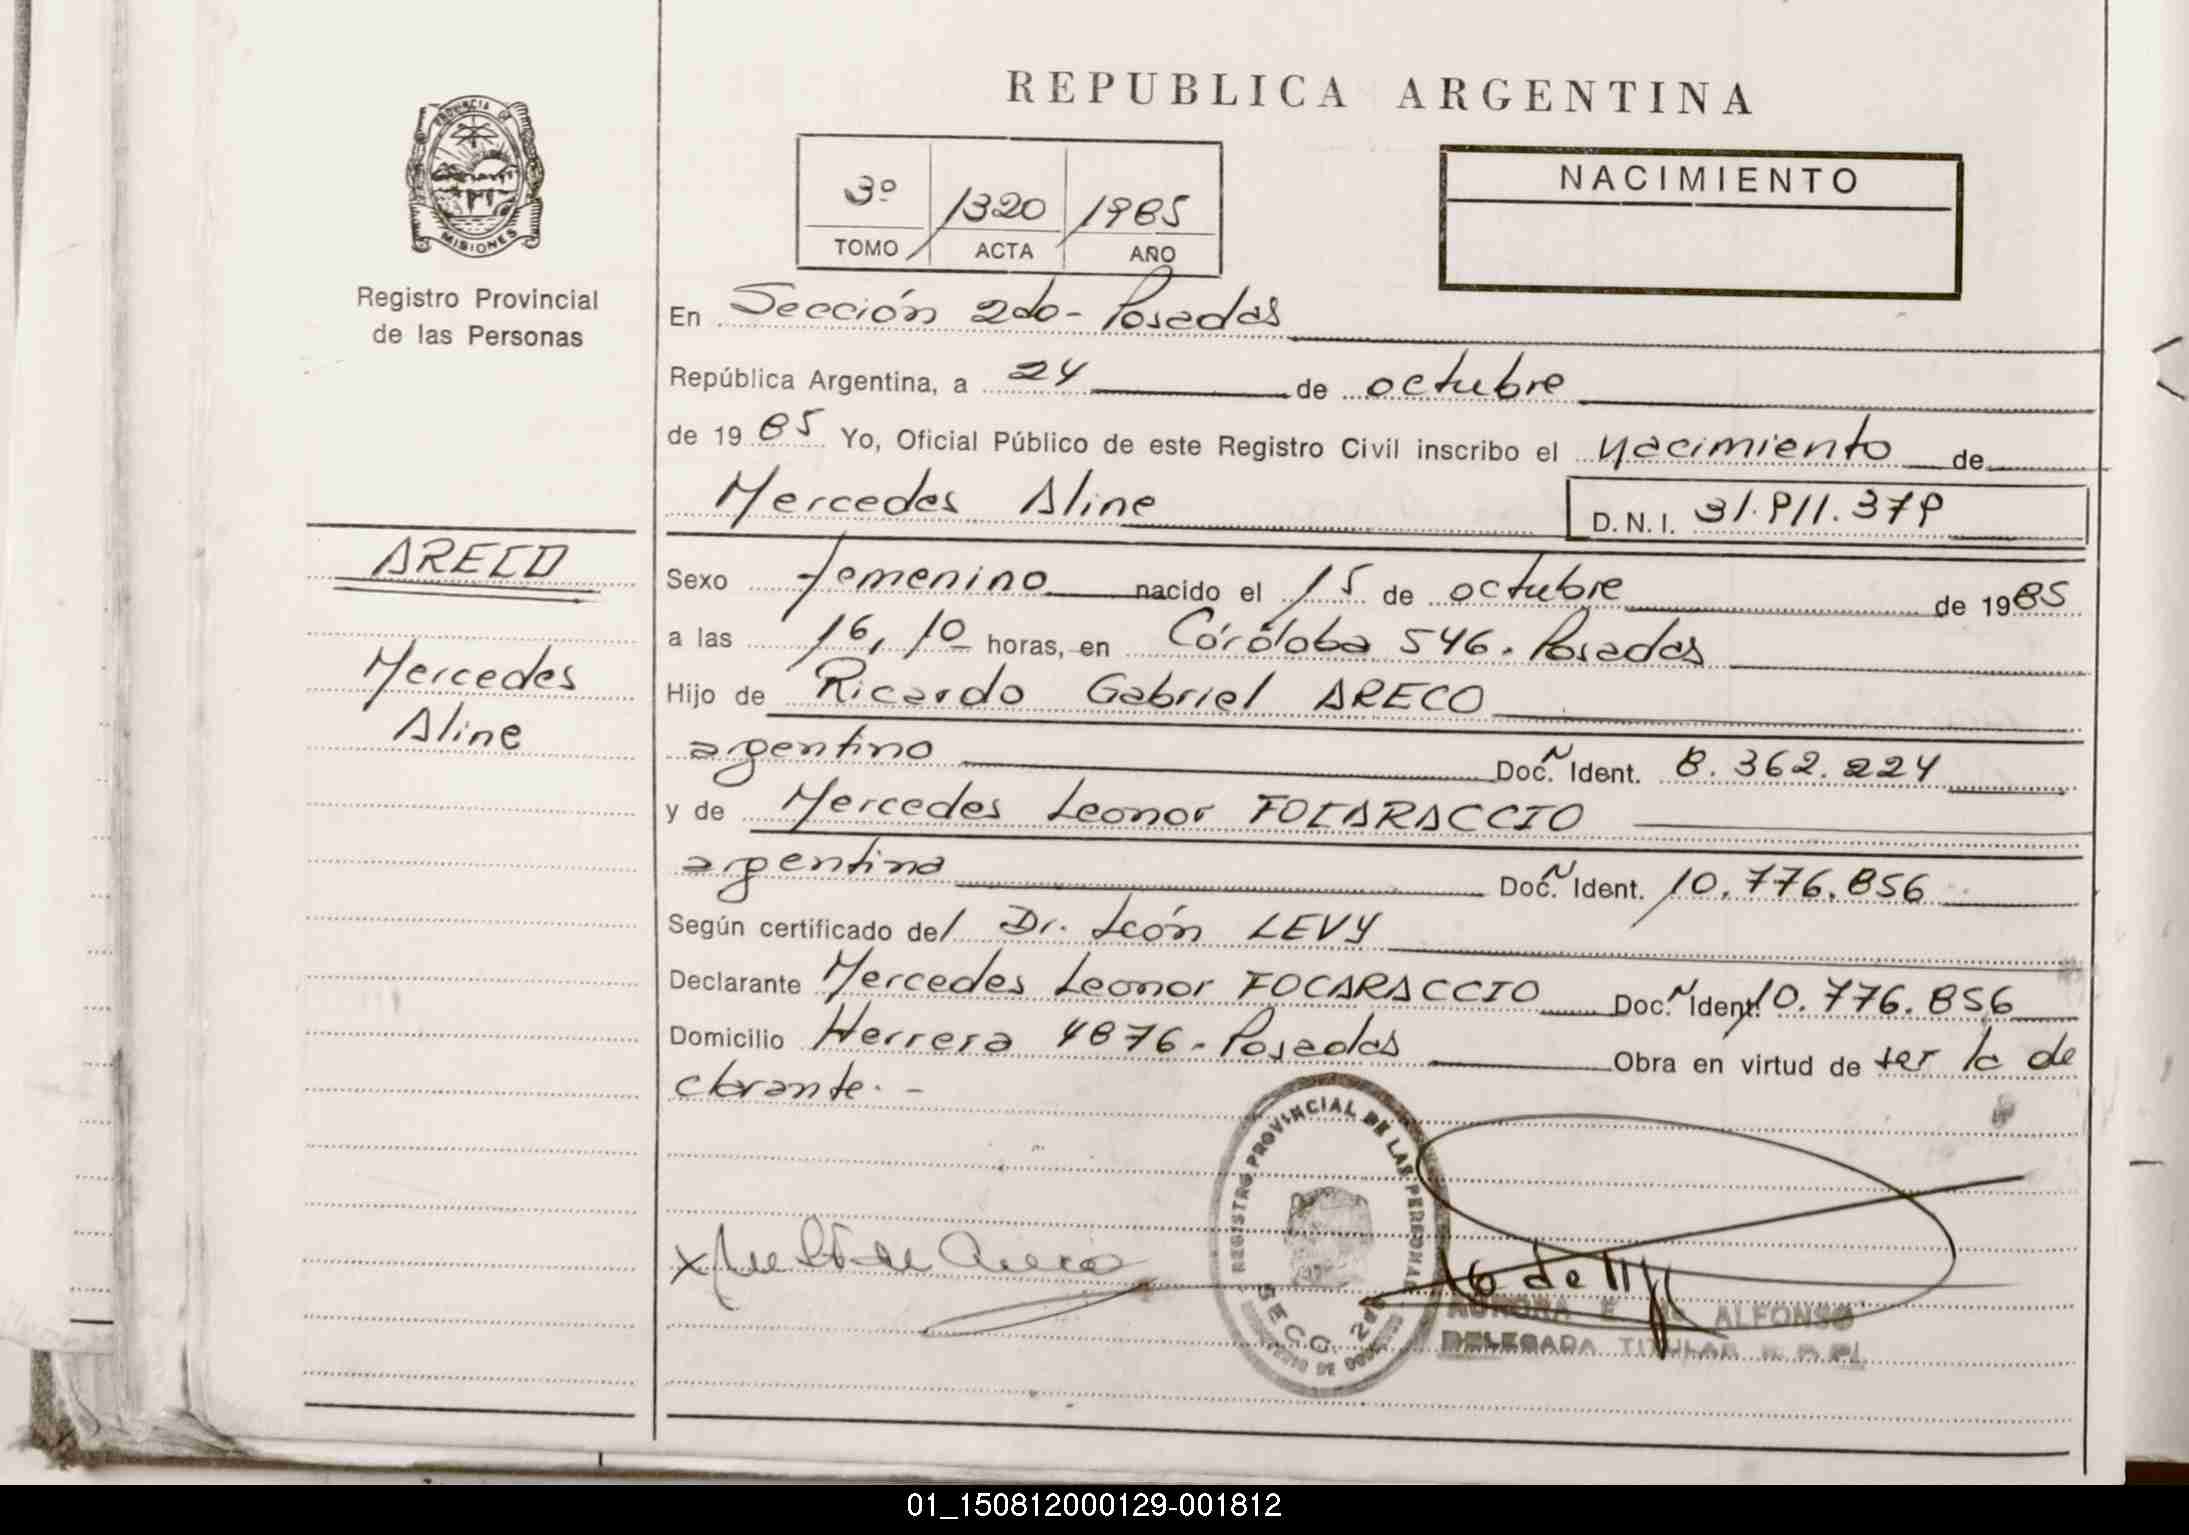 REPUBLICA ARGENTINA
PROVINCIA
MISIONES
Registro Provincial
de las Personas
3º 1320 1985
TOMO ACTA AÑO
NACIMIENTO
En Sección 2do - Posadas
República Argentina, a 24 de octubre
de 19 85 Yo, Oficial Público de este Registro Civil inscribo el Nacimiento de
Mercedes Aline D.N.I. 31.911.379
ARECO
Mercedes
Aline
Sexo femenino nacido el 15 de octubre de 1985
a las 16,10 horas, en Córdoba 546. Posadas
Hijo de Ricardo Gabriel ARECO
argentino Doc. Ident. 8.362.224
y de Mercedes Leonor FOCARACCIO
argentina Doc. Ident. 10.776.856
Según certificado del Dr. León LEVY
Declarante Mercedes Leonor FOCARACCIO Doc. Ident. 10.776.856
Domicilio Herrera 4876 - Posadas Obra en virtud de ser la de
clarante. -
REGISTRO PROVINCIAL DE LAS PERSONAS
SECC. 2da
AURORA E. ALFONSO
DELEGADA TITULAR
01_150812000129-001812